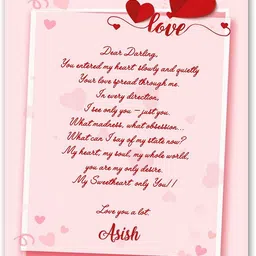 love
Dear Darling,
You entered my heart slowly and quietly
Your love spread through me.
In every direction,
I see only you – just you.
What madness, what obsession...
What can I say of my state now?
My heart, my soul, my whole world,
you are my only desire.
My Sweetheart only You!!
Love you a lot
Asish